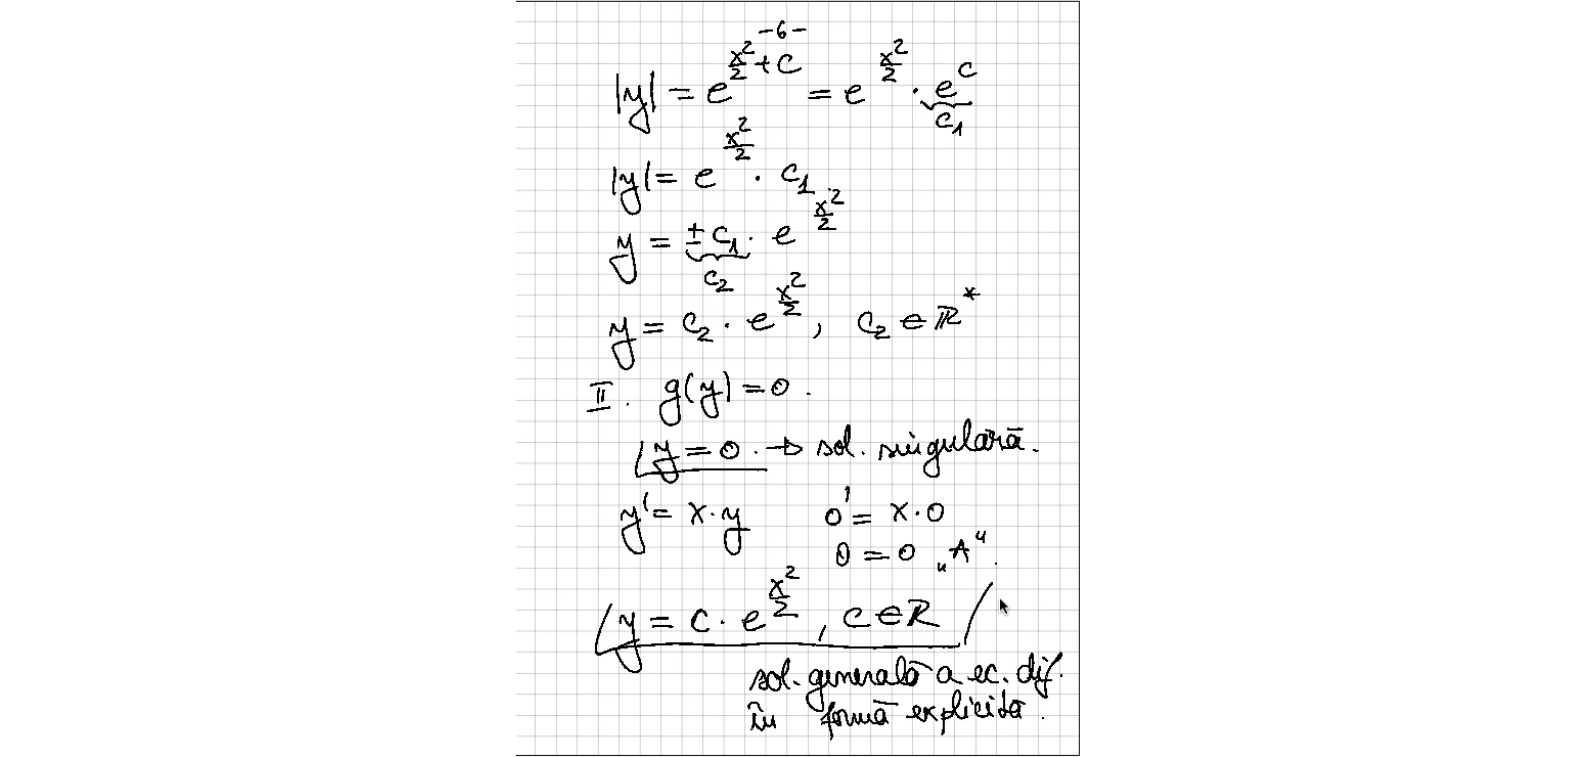 -6-
|y| = e^{x²/2 + C} = e^{x²/2} · e^C
C₁
|y| = e^{x²/2} · C₁
y = ± C₁ · e^{x²/2}
C₂
y = C₂ · e^{x²/2}, C₂ ∈ ℝ*
II. g(y) = 0.
y = 0. → sol. singulară.
y' = x·y 0' = x·0
0 = 0 „A".
y = C · e^{x²/2}, C ∈ R
sol. generală a ec. dif.
în formă explicită.